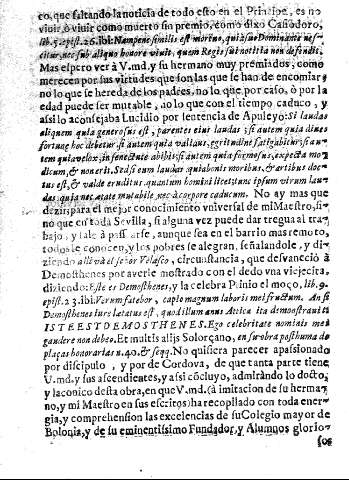 co, que faltando la noticia de todo esto en el Principe, es no
viuir, ò viuir como muerto sin premio, como dixo Casiodoro,
lib. 5. epist. 26. ibi: Nam penè similis est mortuo, qui à suo Dominante nes-
citur, nec sub aliquo honore viuit, quem Regis sui notitia non defendit.
Mas espero ver à V.md. y su hermano muy premiados; como
merecen por sus virtudes que son las que se han de encomiar;
no lo que se hereda de los padres, no lo que por caso, ò por la
edad puede ser mutable, no lo que con el tiempo caduco, y
assi lo aconsejaba Lucidio por sentencia de Apuleyo: Si laudas
aliquem quia generosus est, parentes eius laudas; si autem quia diues
fortunæ hoc debetur; si autem quia validus, ægritudine fatigabitur; si au-
tem quia velox, in senectute abibit; si autem quia formosus, expecta mo-
dicum, & non erit. Sed si eum laudas quia bonis moribus, & artibus doc-
tus est, & valde eruditus quantum homini licet, tunc ipsum virum lau-
das, quia nec ætate mutabile nec à corpore caducum. No ay mas que
dezir para el mejor conocimiento vniversal de mi Maestro, si-
no que en toda Sevilla, si alguna vez puede dar tregua al tra-
bajo, y sale à passearse, aunque sea en el barrio mas remoto,
todos le conocen, y los pobres se alegran, señalandole, y di-
ziendo allí và el señor Velasco, circunstancia, que desvaneciò à
Demosthenes por averle mostrado con el dedo vna viejecita,
diziendo: Este es Demosthenes, y la celebra Plinio el moço, lib. 9.
epist. 23. ibi: Verum fatebor, capio magnum laboris mei fructum. An si
Demosthenes iure lætatus est, quod illum anus Attica ita demonstrauit
ISTE EST DEMOSTHENES. Ego celebritate nominis mei
gaudere non debeo. Et multis alijs Solorçano, en su obra posthuma de
plaças honorarias n. 40. & seqq. No quisiera parecer apasionado
por discipulo, y por de Cordova, de que tanta parte tiene
V.md. y sus ascendientes, y assi cõcluyo, admirãdo lo docto,
y laconico desta obra, en que V.md. (à imitacion de su herma-
no, y mi Maestro en sus escritos) ha recopilado con toda ener-
gia, y comprehension las excelencias de su Colegio mayor de
Bolonia, y de su eminentissimo Fundador, y Alumnos glorio-
sos